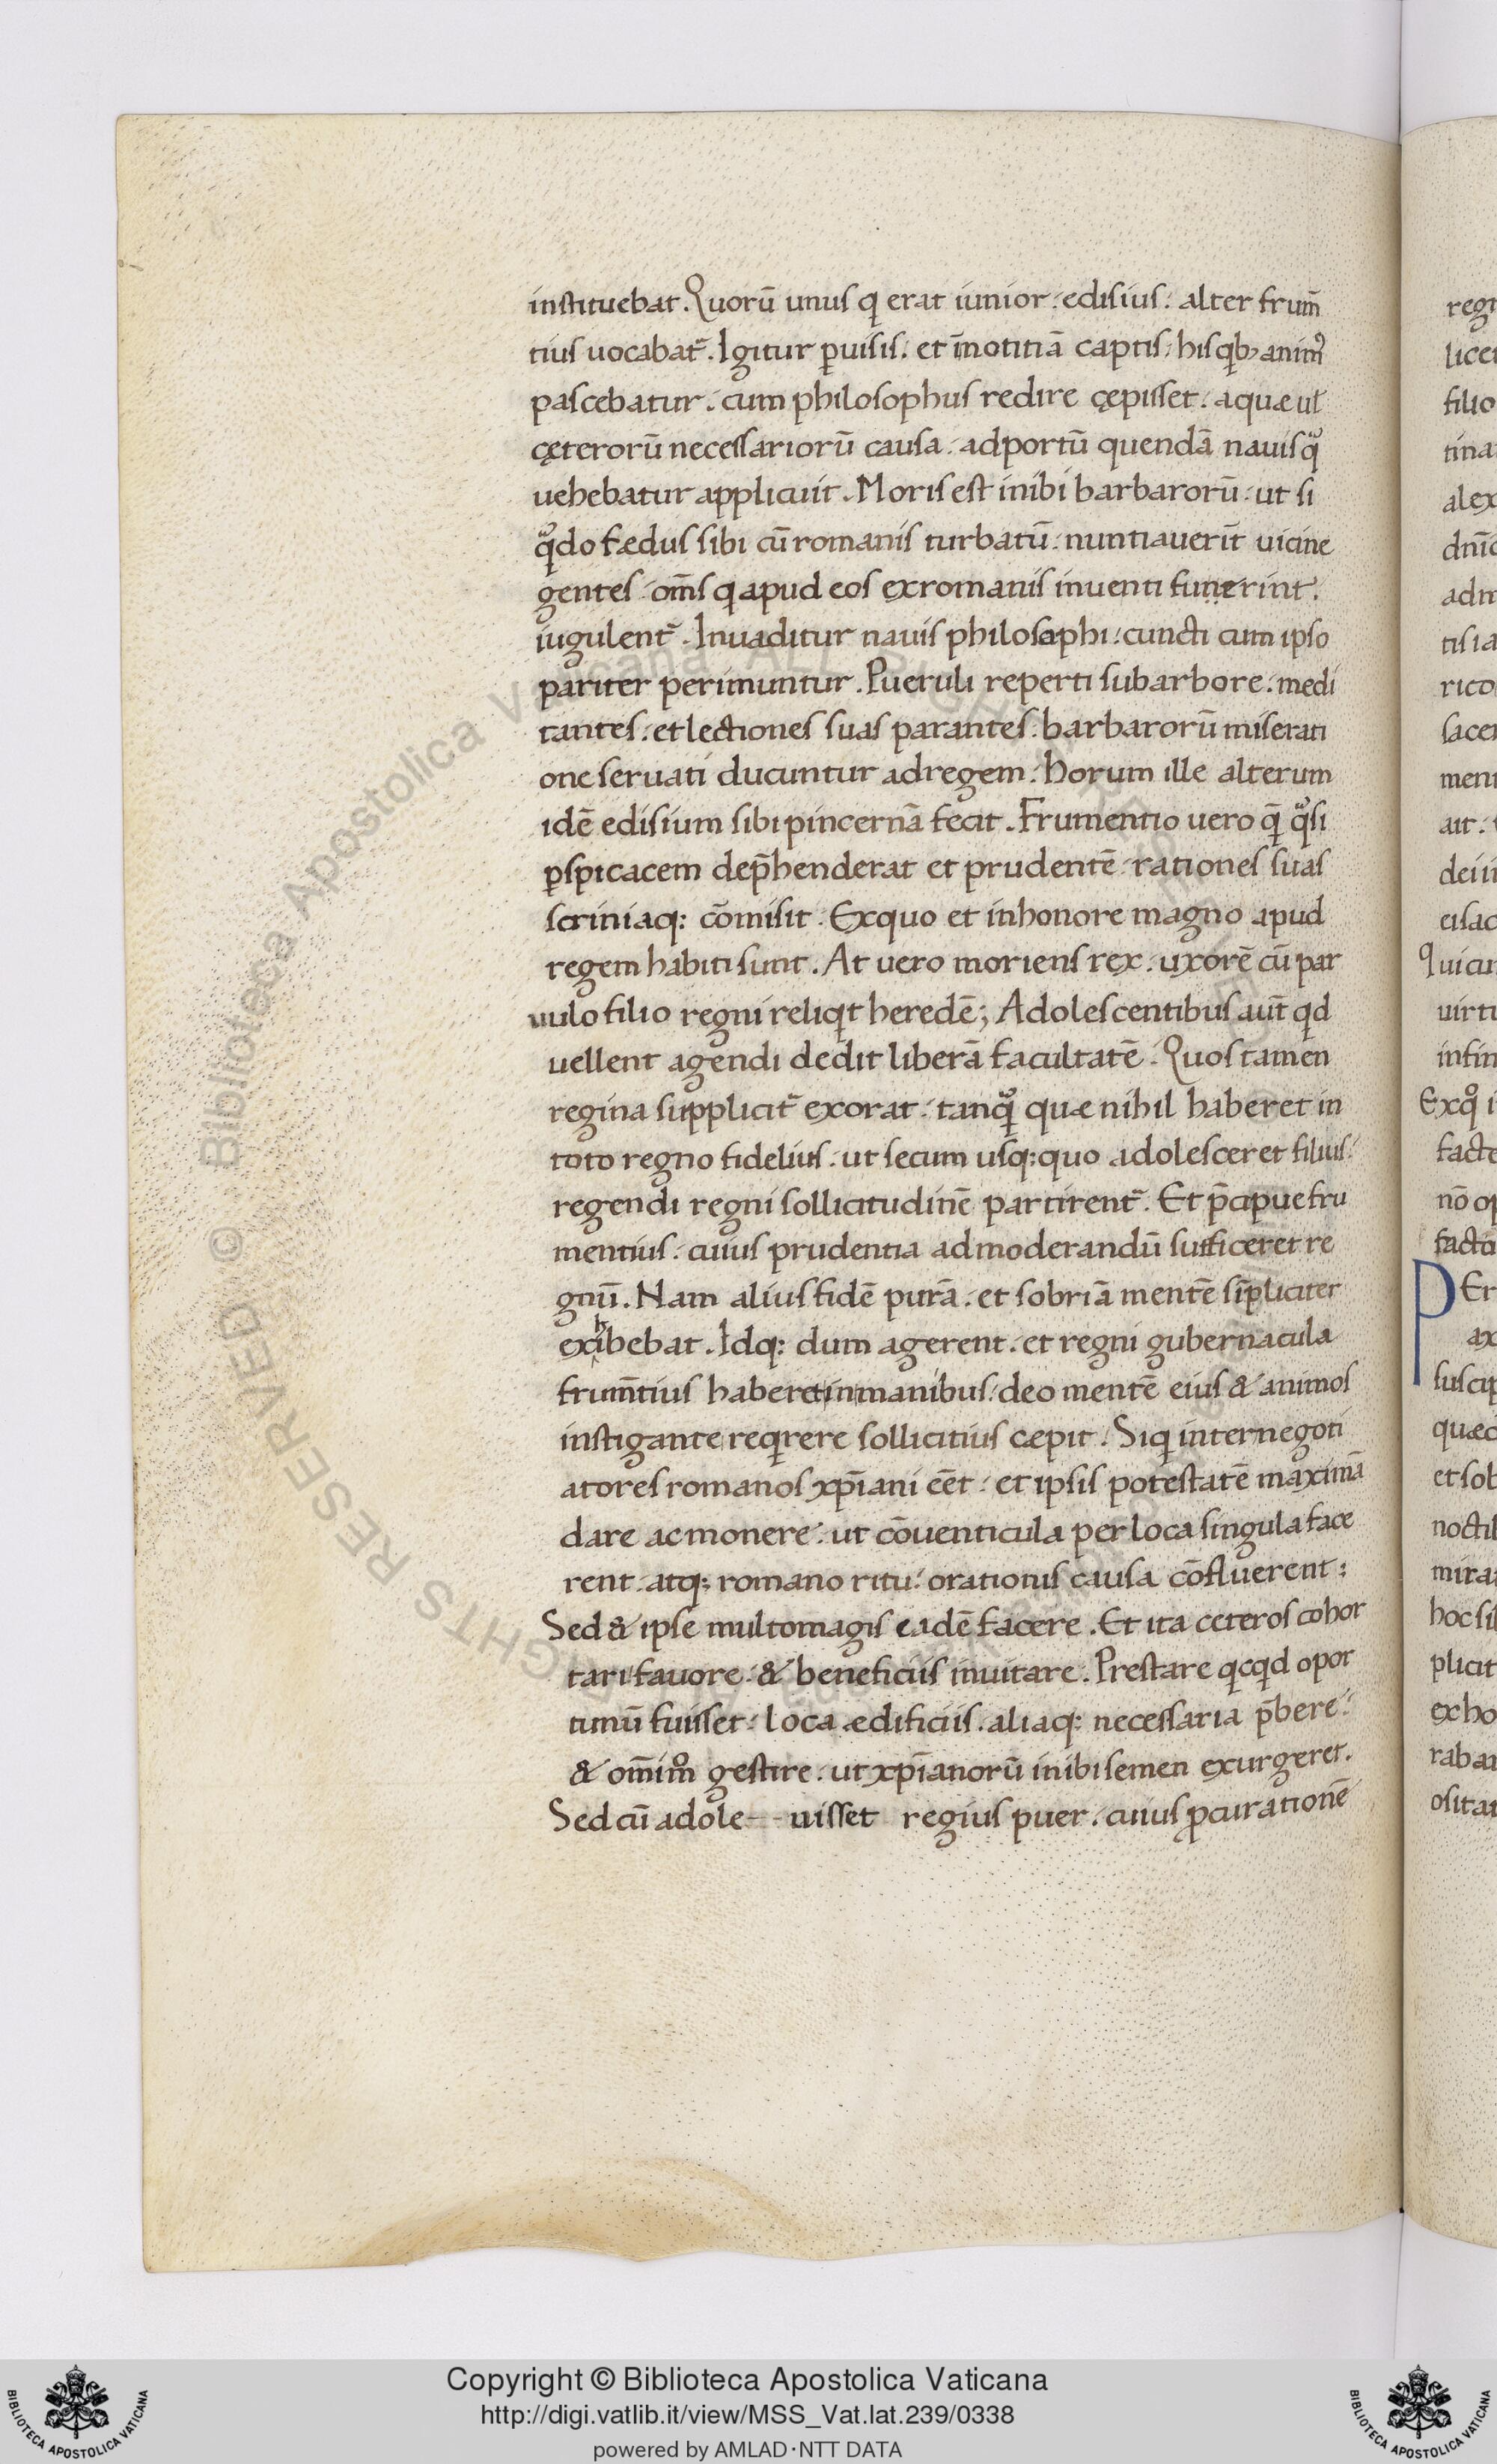 instituebat. Quorū unus q erat iunior. edisius. alter frum̄
tius uocabat̄. Igitur ꝑuisis. et īnotitiā captis. his qb, anim̾
pascebatur. cum philosophus redire cępisset. aquæ ul̄
cęterorū necessariorū causa. adportū quendā nauis qͦ
uehebatur applicuit. Moris est inibi barbarorū. ut si
qͦdo fædus sibi cū romanis turbatū. nuntiauerīt uicine
gentes. om̄s q apud eos exromanis inuenti funerint.
iugulent̄. Inuaditur nauis philosophi. cuncti cum ipso
pariter perimuntur. Pueruli reperti subarbore. medi
tantes. et lectiones suas parantes. barbarorū miserati
one seruati ducuntur adregem. horum ille alterum
idē edisium sibi pincernā fecit. Frumentio uero q̄ qͣsi
ꝑspicacem dep̄henderat et prudentē. rationes suas
scriniaq: cōmisit. Exquo et inhonore magno apud
regem habiti sunt. At uero moriens rex. uxorē cū par
uulo filio regni reliqt heredē; Adolescentibus aut̄ qd
uellent agendi dedit liberā facultatē. Quos tamen
regina supplicit̄ exorat. tanqͣ quæ nihil haberet in
toto regno fidelius. ut secum usq: quo adolesceret filius.
regendi regni sollicitudinē partirent̄. Et p̄cipue fru
mentius. cuius prudentia admoderandū sufficeret re
gnū. Nam alius fidē purā. et sobriā mentē sīpliciter
exhibebat. Idq: dum agerent. et regni gubernacula
frum̄tius haberet in manibus. deo mentē eius & animos
instigante reqrere sollicitius cæpit. Siq inter negoti
atores romanos xp̄iani eēt. et ipsis potestatē maximā
dare ac monere. ut cōuenticula per loca singula face
rent. atq: romano ritu. orationis causa cōfluerent:
Sed & ipse multomagis eadē facere. Et ita ceteros cohor
tari fauore. & beneficiis inuitare. Prestare qcqd opor
tunū fuisset. loca ædificiis. aliaq: necessaria p̄bere.
& om̄imͦ gestire. ut xp̄ianorū inibi semen exurgeret.
Sed cū adole--uisset regius puer. cuius ꝓcurationē
Copyright © Biblioteca Apostolica Vaticana
http://digi.vatlib.it/view/MSS_Vat.lat.239/0338
powered by AMLAD·NTT DATA